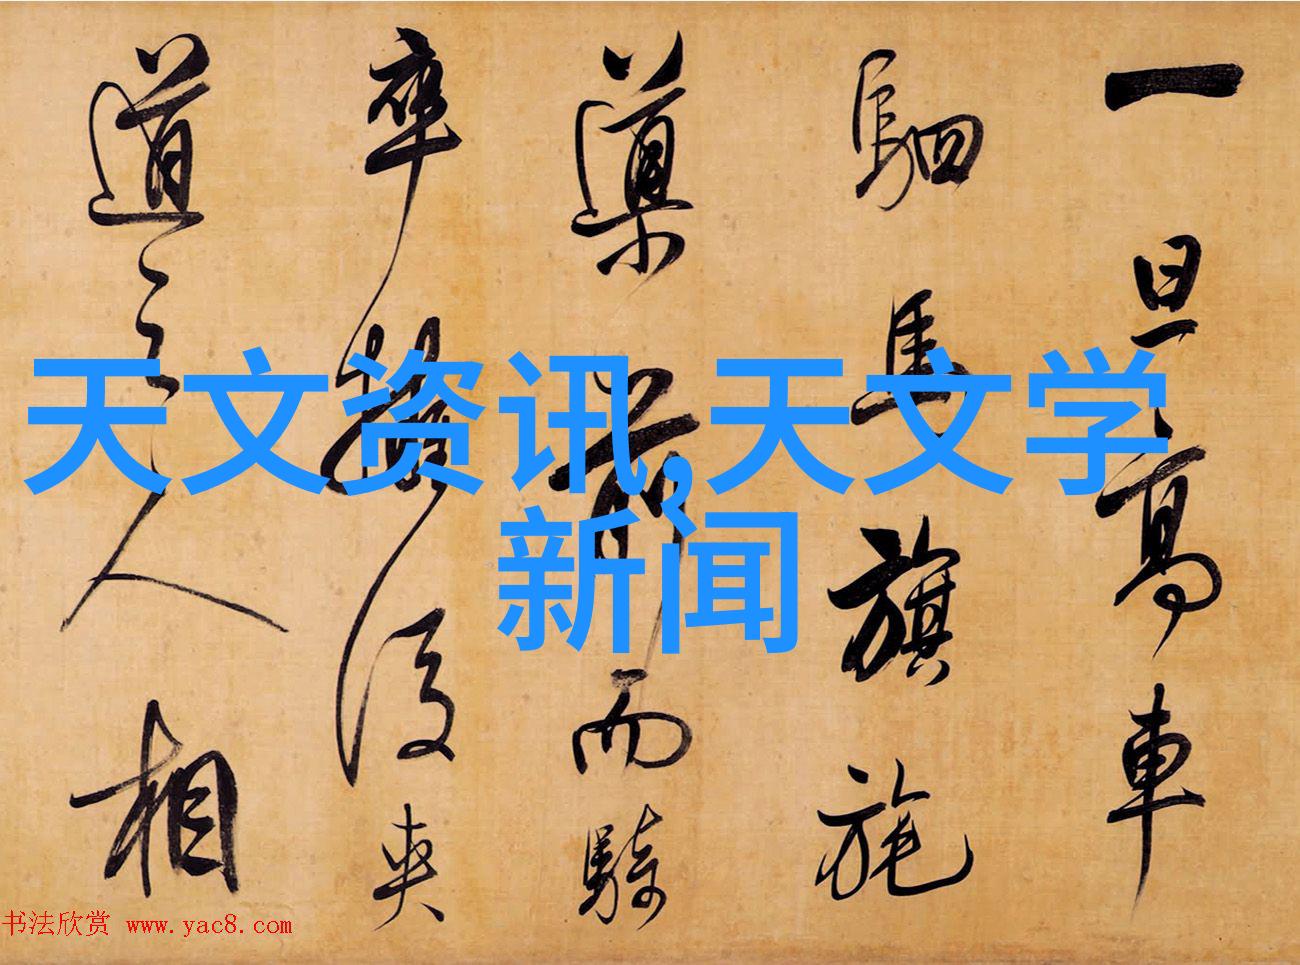 一旦高車
駟馬旗旄
導前而騎
卒擁後夾
道之人相
天文资讯,天文学
新闻
书法欣赏 www.yac8.com